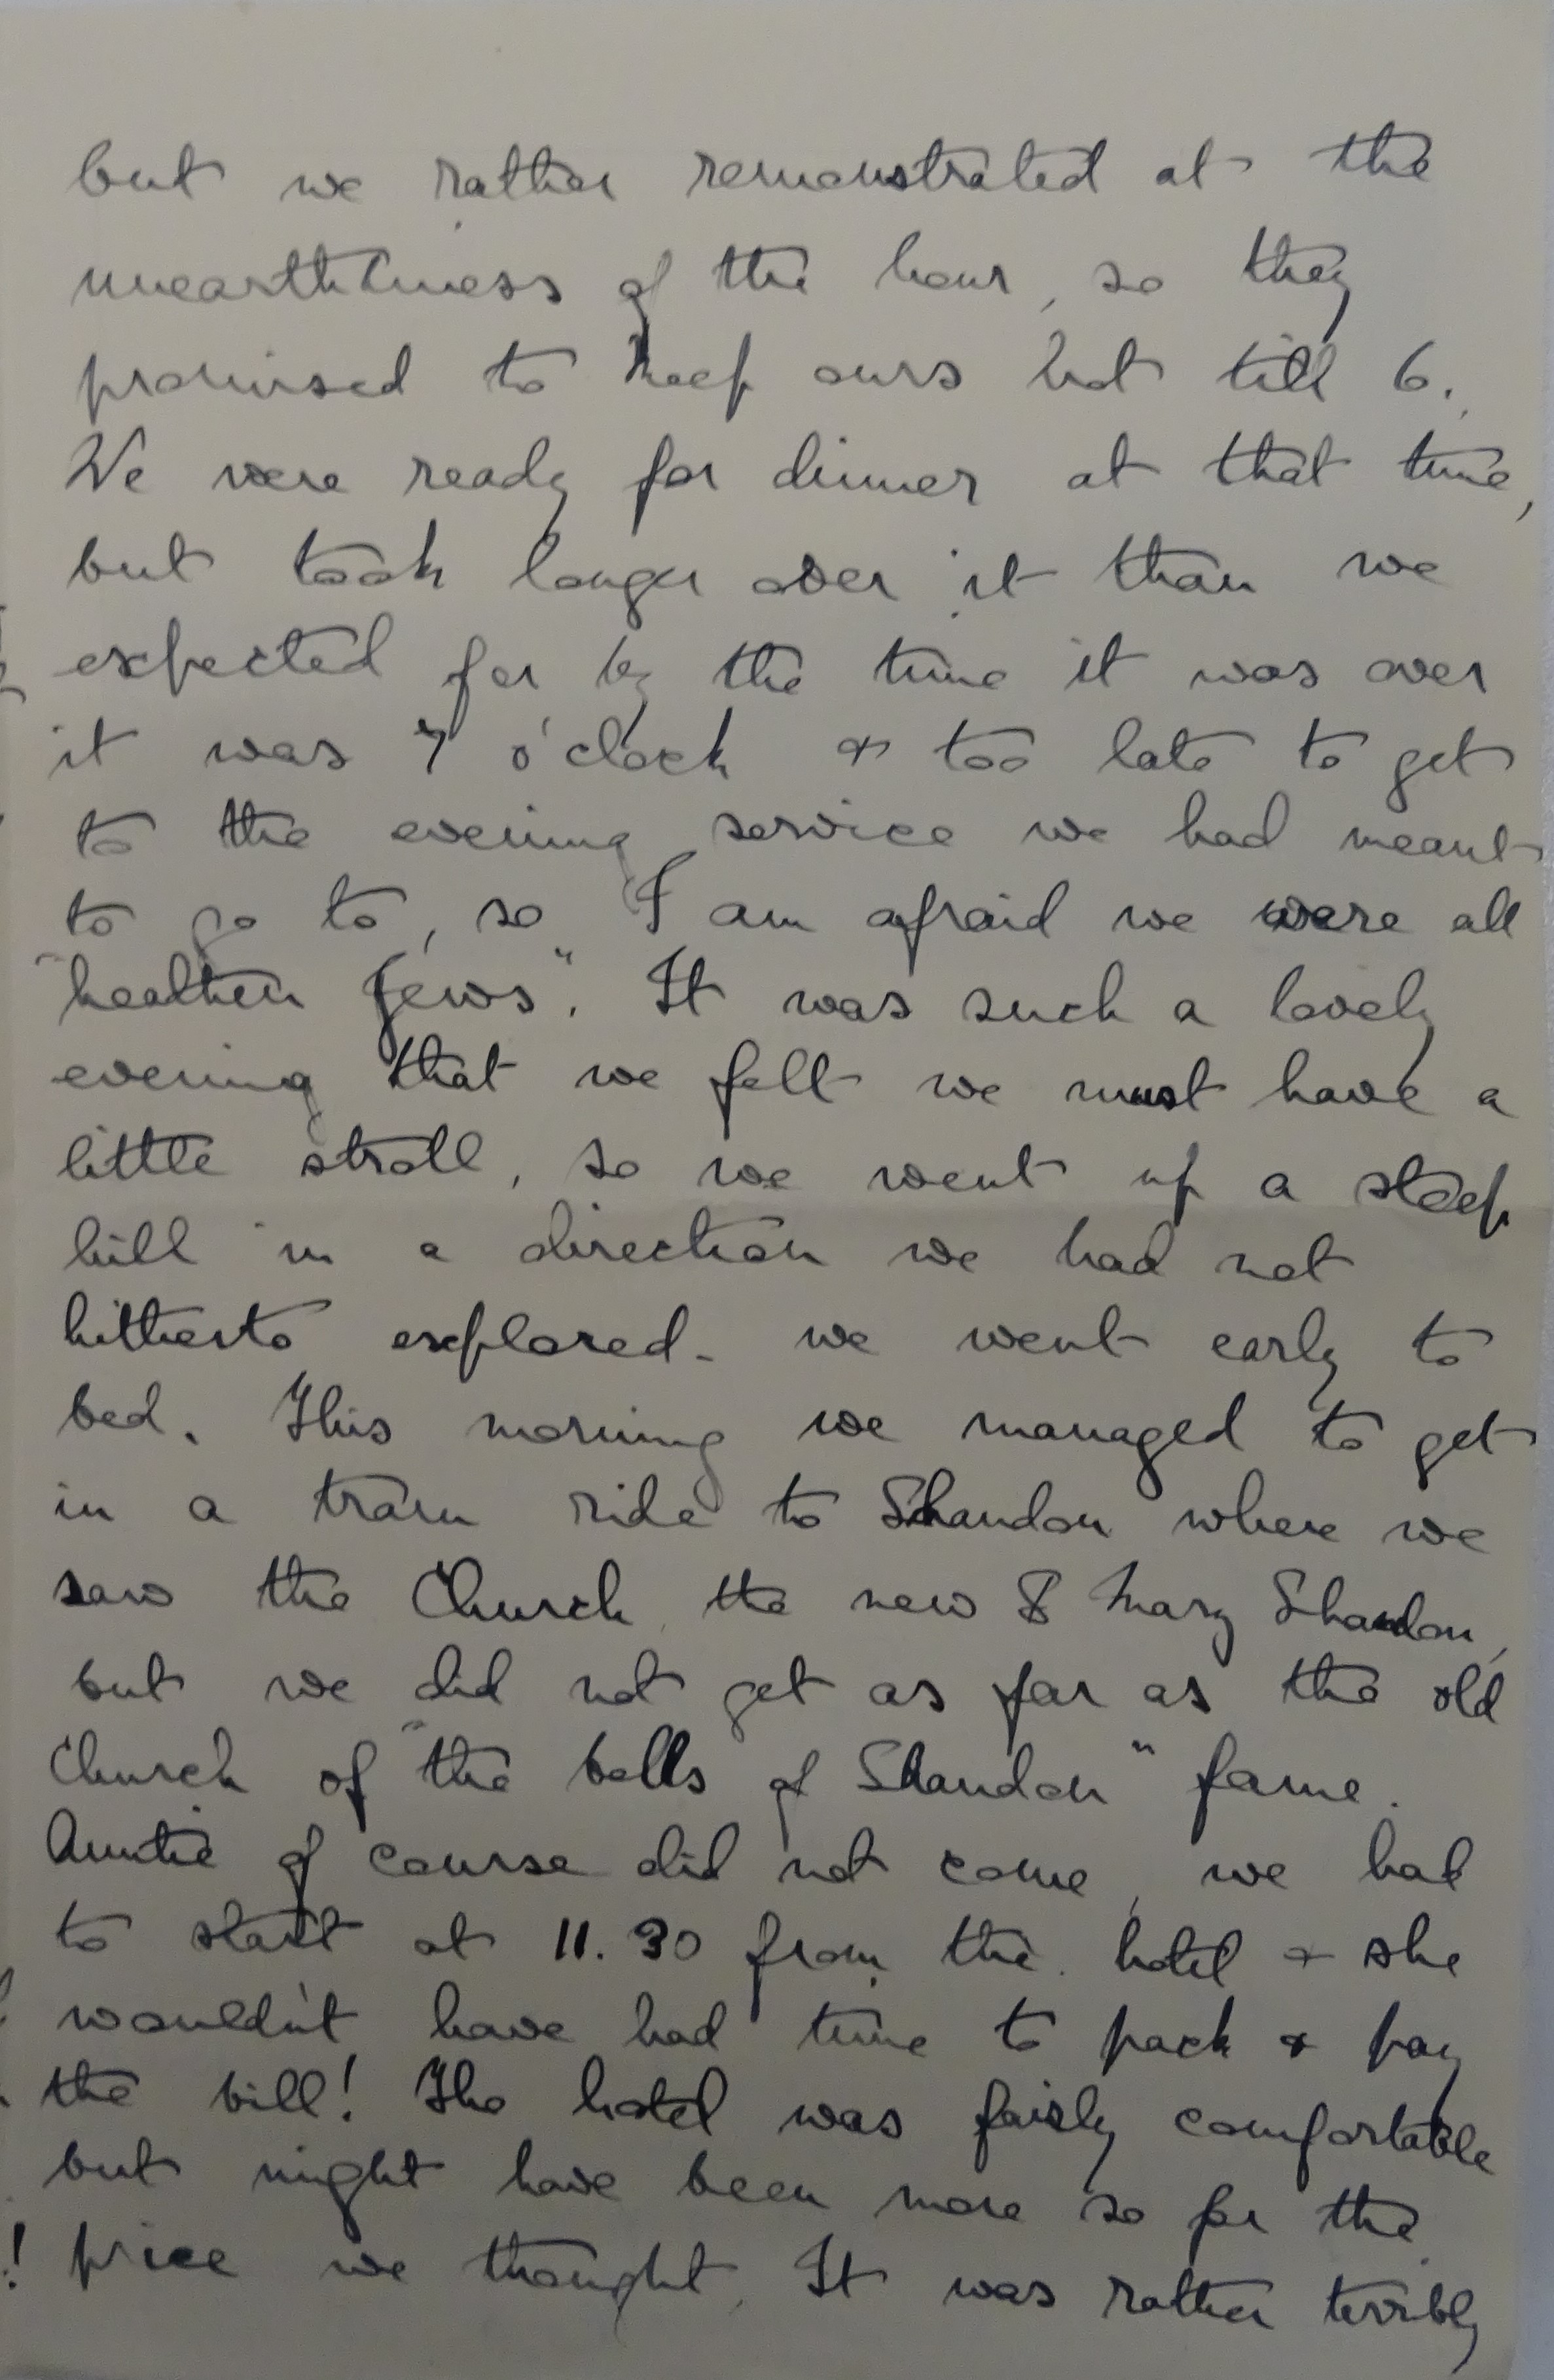 but we rather remonstrated at the
unearthliness of the hour, so they
promised to keep ours hot till 6.
We were ready for dinner at that time,
but took longer over it than we
expected for by the time it was over
it was 7 o'clock & too late to get
to the evening service we had meant
to go to, so I am afraid we were all
"heathen Jews". It was such a lovely
evening that we felt we must have a
little stroll, so we went up a steep
hill in a direction we had not
hitherto explored - we went early to
bed. This morning we managed to get
in a tram ride to Shandon where we
saw the Church, the new St Mary Shandon,
but we did not get as far as the old
Church of "the bells of Shandon" fame.
Auntie of course did not come, we had
to start at 11.30 from the hotel & she
wouldn't have had time to pack & pay
the bill! The hotel was fairly comfortable
but might have been more so for the
! price we thought. It was rather terribly